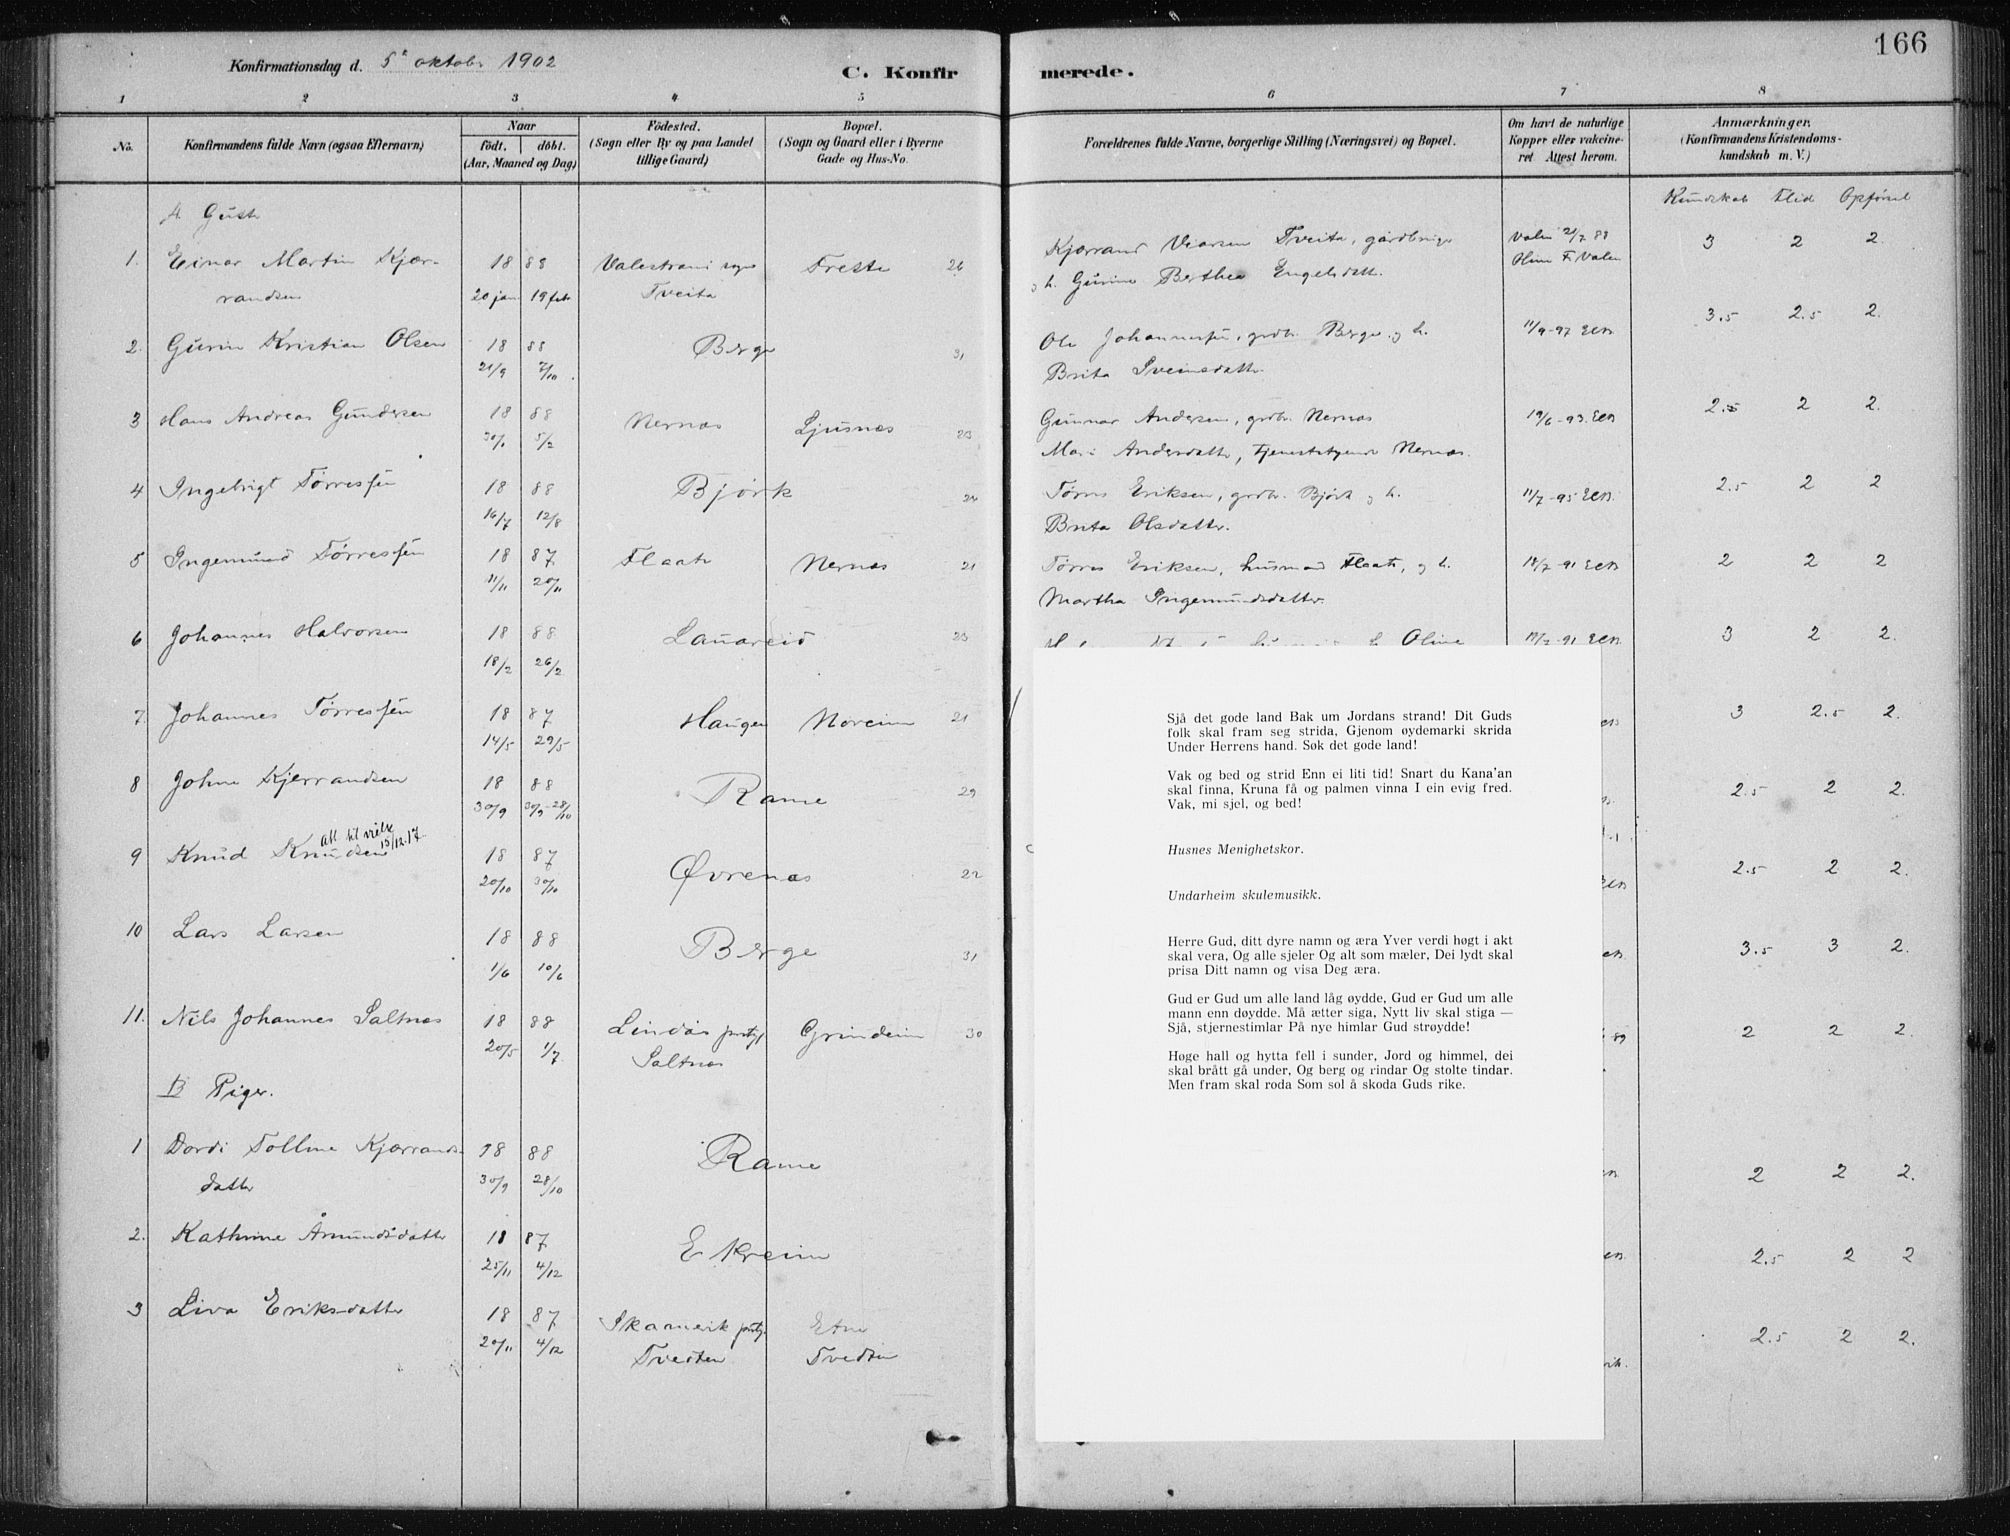 166
Konfirmationsdag d. 5 oktober 1902
C. Konfirmerede.
1 2 3 4 5 6 7 8
No.
Konfirmandens fulde Navn (ogsaa Efternavn)
Naar
født. døbt.
(Aar, Maaned og Dag)
Fødested.
(Sogn eller By og paa Landet
tillige Gaard)
Bopæl.
(Sogn og Gaard eller i Byerne
Gade og Hus-No.
Forældrenes fulde Navne, borgerlige Stilling (Næringsvei) og Bopæl.
Om havt de naturlige
Kopper eller vakcine-
ret Attest herom.
Anmærkninger.
(Konfirmandens Kristendoms-
kundskab m. V.)
Kundskab Flid Opførsel
A Gutter
1. Einar Martin Kjær- 18 88 Tveita 26 Kjærrand Tveita,
randsen 20 jan 19 feb Gurine Berthea Engelsdatt.
Valen 21/7 88 3 2 2.
2. Olsen 18 88 Berge 31 Ole Johannesen, grdbr. Berge og h. 11/9-97 3.5 2.5 2.
21/9 7/10 Brita Sveinsdatter
3 Hans Andreas Gundersen 18 88 Nernæs Ljusnæs 23 Gunnar Andersen, grdbr. Nernæs 19/6-93 2.5 2 2.
30/1 5/2 Mari Andersdatter, Nernæs.
4 Ingebrigt Tørressen 18 88 Bjørk Tørres Eriksen, grdbr. Bjørk og h. 11/7-95 2.5 2 2
16/7 12/8 Brita Olsdatter.
5 Ingemund Tørressen 18 87 Flaate Nernæs 21 Tørres Eriksen, husmand Flaate, og h. 18/7-91 2 2 2
11/11 20/11 Martha Ingemundsdatter.
6 Johannes Halvorsen 18 88 Lauareid 23 Oline 3 2 2.
18/2 26/2
7. Johannes Tørressen 18 87 Haugen Noreim 21 3 2.5 2.
14/5 29/5
8 Johne Kjerrandsen 18 88 Rame 29 2.5 2 2.
30/9 30/9-28/10
9 Knud Knudsen att. til vielse 15/12.17. 18 87 Øvrenæs 22 2.5 2 2.
20/10 30/10
10 Lars Larsen 18 88 Berge 31 3.5 3 2.
1/6 10/6
11. Nils Johannes Saltnæs 18 88 Lindås prestgj. Grindeim 30 2 2 2.
20/5 1/7 Saltnæs
B Piger.
1 Dordi Kjærrands- 18 88 Rame 2 2 2.
datter 30/9 28/10
2. Kathrine Åmundsdatter 18 87 Ekreim 2.5 2 2
25/11 4/12
3 Liva Eriksdatter 18 87 Skånevik prstgj. Etne 2.5 2 2.
20/11 4/12 Tvedten Tvedten
Sjå det gode land Bak um Jordans strand! Dit Guds
folk skal fram seg strida, Gjenom øydemarki skrida
Under Herrens hand. Søk det gode land!
Vak og bed og strid Enn ei liti tid! Snart du Kana'an
skal finna, Kruna få og palmen vinna I ein evig fred.
Vak, mi sjel, og bed!
Husnes Menighetskor.
Undarheim skulemusikk.
Herre Gud, ditt dyre namn og æra Yver verdi høgt i akt
skal vera, Og alle sjeler Og alt som mæler, Dei lydt skal
prisa Ditt namn og visa Deg æra.
Gud er Gud um alle land låg øydde, Gud er Gud um alle
mann enn døydde. Må ætter siga, Nytt liv skal stiga —
Sjå, stjernestimlar På nye himlar Gud strøydde!
Høge hall og hytta fell i sunder, Jord og himmel, dei
skal brått gå under, Og berg og rindar Og stolte tindar.
Men fram skal roda Som sol å skoda Guds rike.